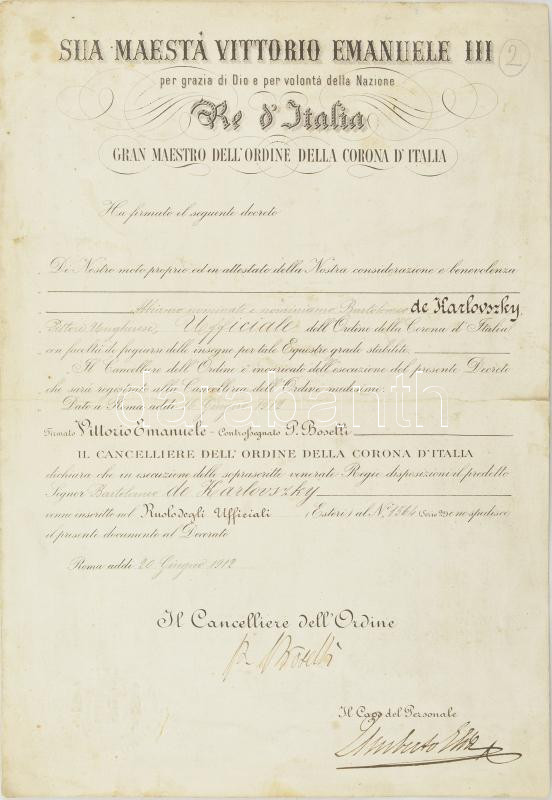 SUA MAESTÀ VITTORIO EMANUELE III
2
per grazia di Dio e per volontà della Nazione
Re d'Italia
GRAN MAESTRO DELL'ORDINE DELLA CORONA D'ITALIA
Ha firmato il seguente decreto
Di Nostro moto proprio ed in attestato della Nostra considerazione e benevolenza
Abbiamo nominato e nominiamo Bartolomeo de Karlovszky
Pittore Ungherese, Uffiziale dell'Ordine della Corona d'Italia
con facoltà di fregiarsi delle insegne per tale Equestre grado stabilite.
Il Cancelliere dell'Ordine è incaricato dell'esecuzione del presente Decreto
che sarà registrato alla Cancelleria dell'Ordine medesimo.
Dato a Roma addì Giugno 1912
Firmato Vittorio Emanuele - Controssegnato P. Boselli
IL CANCELLIERE DELL'ORDINE DELLA CORONA D'ITALIA
dichiara che in esecuzione delle soprascritte venerate Regie disposizioni il predetto
Signor Bartolomeo de Karlovszky
venne inscritto nel Ruolo degli Uffiziali (Esteri) al N. 7564 (Serie 2a) e ne spedisce
il presente documento al Decorato
Roma addì 20 Giugno 1912
Il Cancelliere dell'Ordine
P. Boselli
Il Capo del Personale
Umberto
darabanth